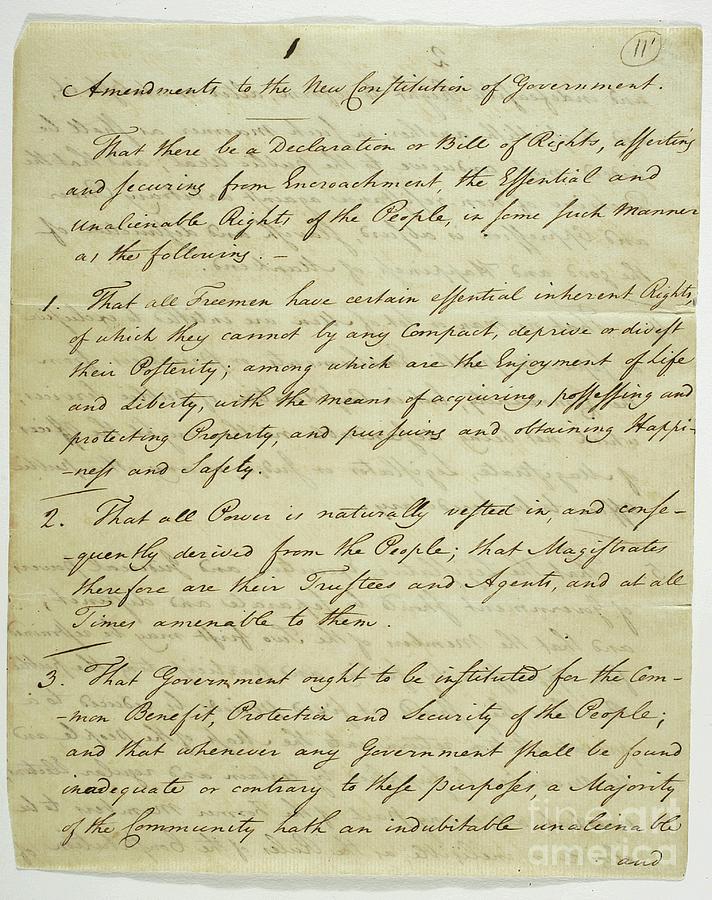 1
11
Amendments to the New Constitution of Government.
That there be a Declaration or Bill of Rights, asserting
and securing from Encroachment, the Essential and
unalienable Rights of the People, in some such Manner
as the following. —
1. That all Freemen have certain essential inherent Rights,
of which they cannot by any Compact, deprive or divest
their Posterity; among which are the Enjoyment of Life
and Liberty, with the means of acquiring, possessing and
protecting Property, and pursuing and obtaining Happi-
-ness and Safety.
2. That all Power is naturally vested in, and conse-
-quently derived from the People; that Magistrates
therefore are their Trustees and Agents, and at all
Times amenable to them.
3. That Government ought to be instituted for the Com-
-mon Benefit, Protection and Security of the People;
and that whenever any Government shall be found
inadequate or contrary to these purposes, a Majority
of the Community hath an indubitable unalienable
and
fine art
america